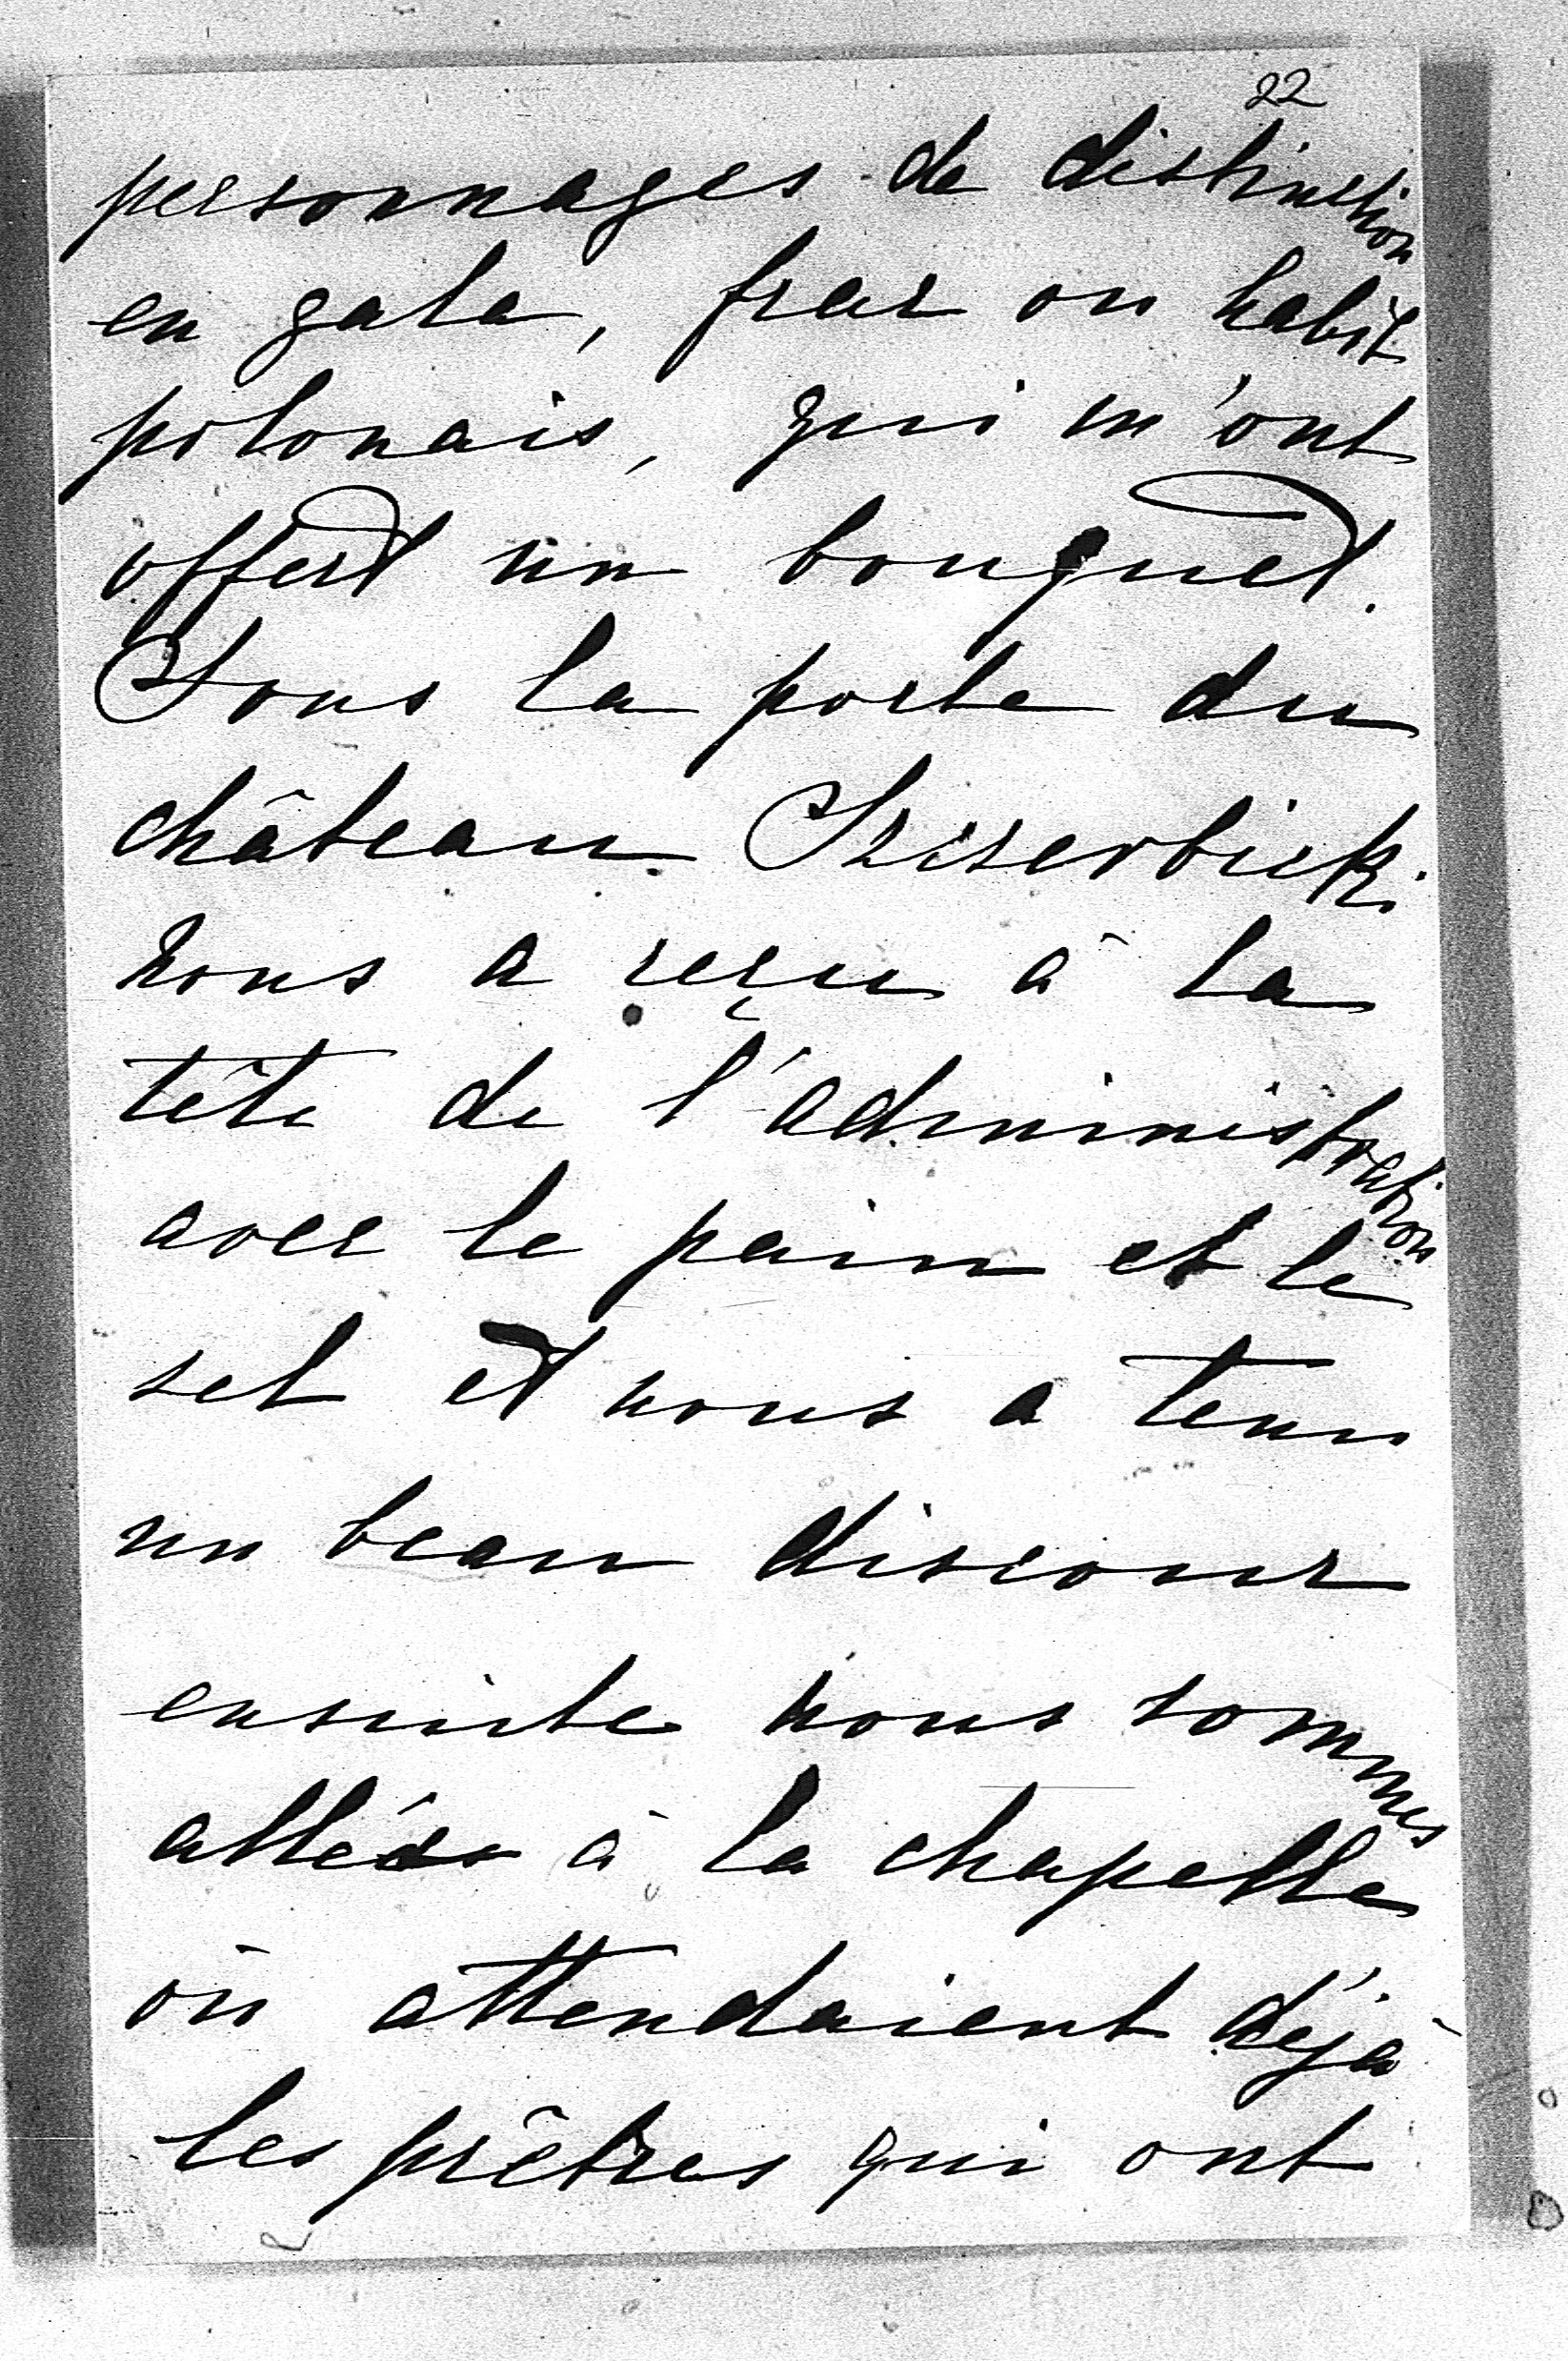 22
personnages de distinction
en gala, frac ou habit
polonais, qui m'ont
offert un bouquet.
Sous la porte du
château Szczerbicki
nous a reçu à la
tête de l'administration
avec le pain et le
sel et nous a tenu
un beau discour
ensuite nous sommes
allés à la chapelle
où attendaient déjà
les prêtres qui ont